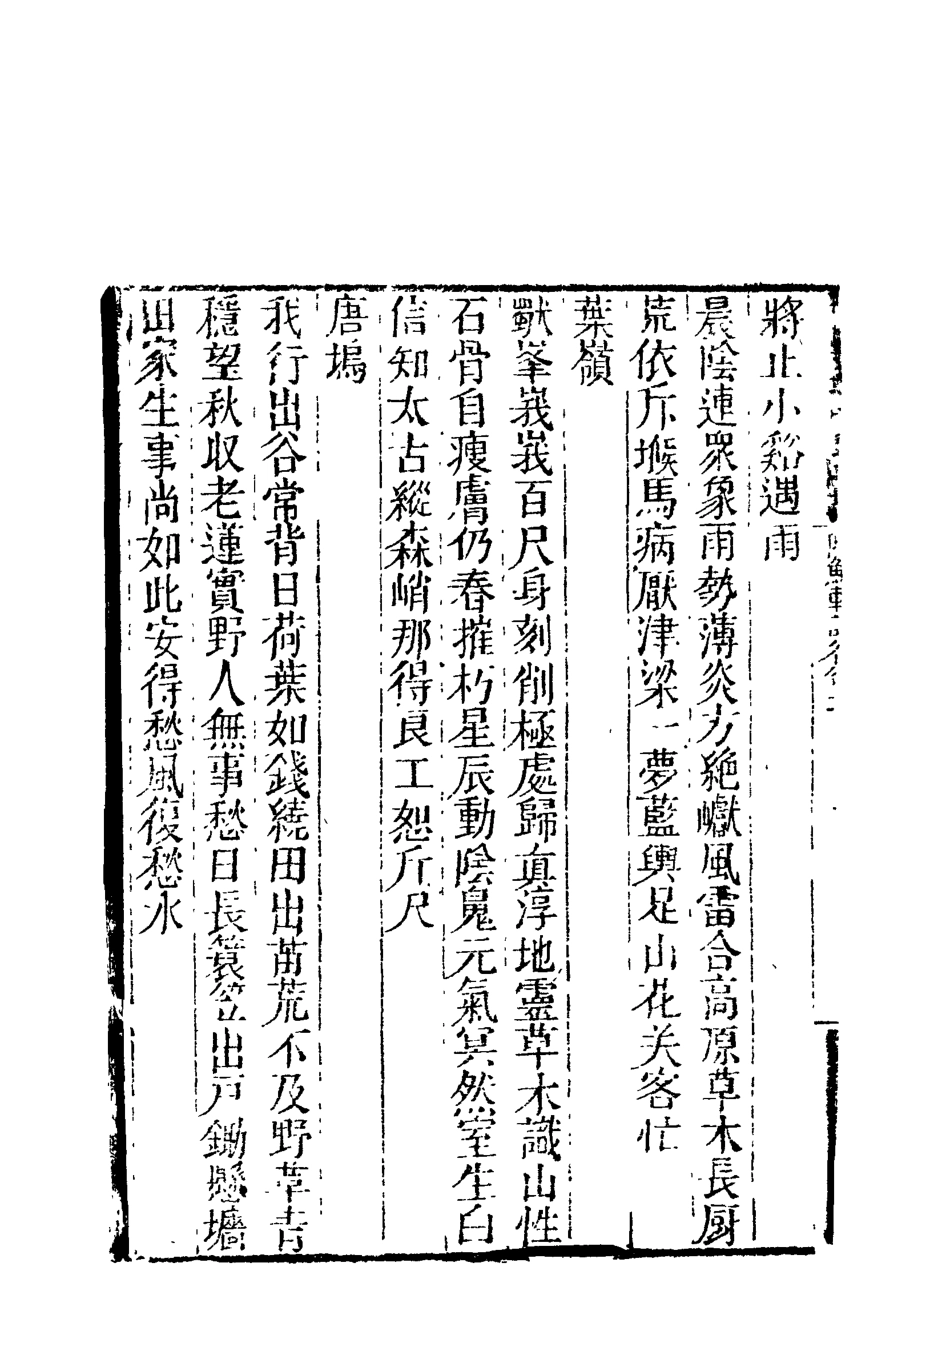 將止小谿遇雨
晨陰連衆象雨勢薄炎方絶巘風雷合高原草木長厨
荒依斥堠馬病厭津梁一夢藍輿足山花关客忙
葉嶺
獸峯峩峩百尺身刻削極處歸眞淳地靈草木識山性
石骨自瘦膚仍春摧朽星辰動陰鬼元氣冥然室生白
信知太古縱森峭那得良工恕斤尺
唐塢
我行出谷常背日荷葉如錢繞田出苗荒不及野草青
穩望秋収老蓮實野人無事愁日長簑笠出戸鋤懸墻
田家生事尚如此安得愁風復愁水